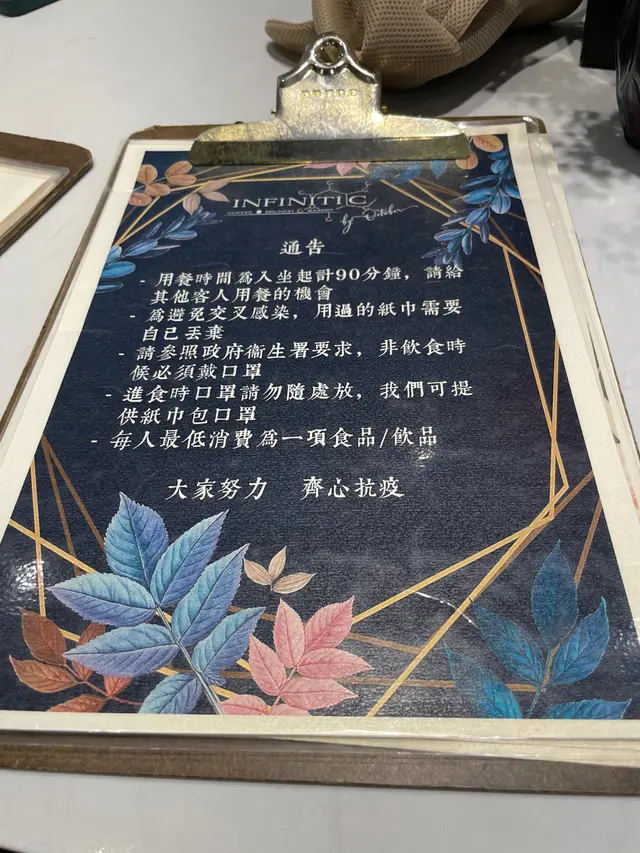 INFINITI C
COFFEE BRUNCH & BAKERY
by October
通告
- 用餐時間為入坐起計90分鐘，請給
其他客人用餐的機會
- 為避免交叉感染，用過的紙巾需要
自己丟棄
- 請參照政府衛生署要求，非飲食時
候必須戴口罩
- 進食時口罩請勿隨處放，我們可提
供紙巾包口罩
- 每人最低消費為一項食品/飲品
大家努力 齊心抗疫